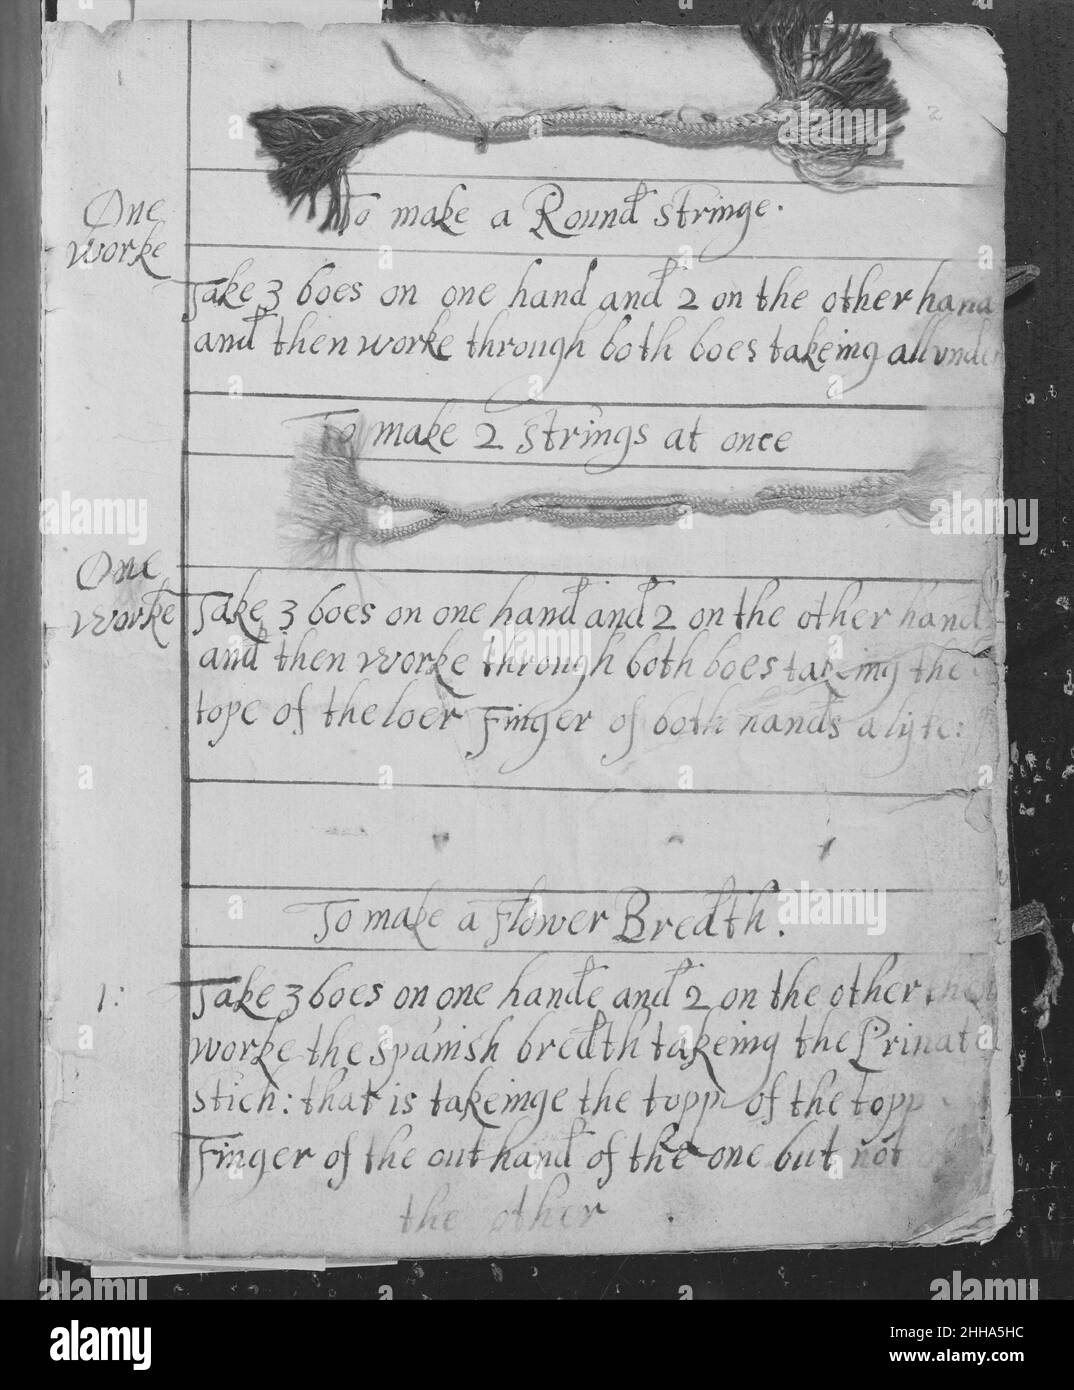 2
To make a Round stringe.
One
worke
Take 3 boes on one hand and 2 on the other hand
and then worke through both boes takeing all vnder
To make 2 strings at once
One
worke
Take 3 boes on one hand and 2 on the other hand
and then worke through both boes takeing the
tope of the loer Finger of both hands a lyke:
To make a Flower Bredth.
1:
Take 3 boes on one hande and 2 on the other then
worke the spanish bredth takeing the Priuate
stich: that is takeinge the topp of the topp
Finger of the out hand of the one but not of
the other
alamy
Image ID: 2HHA5HC
www.alamy.com